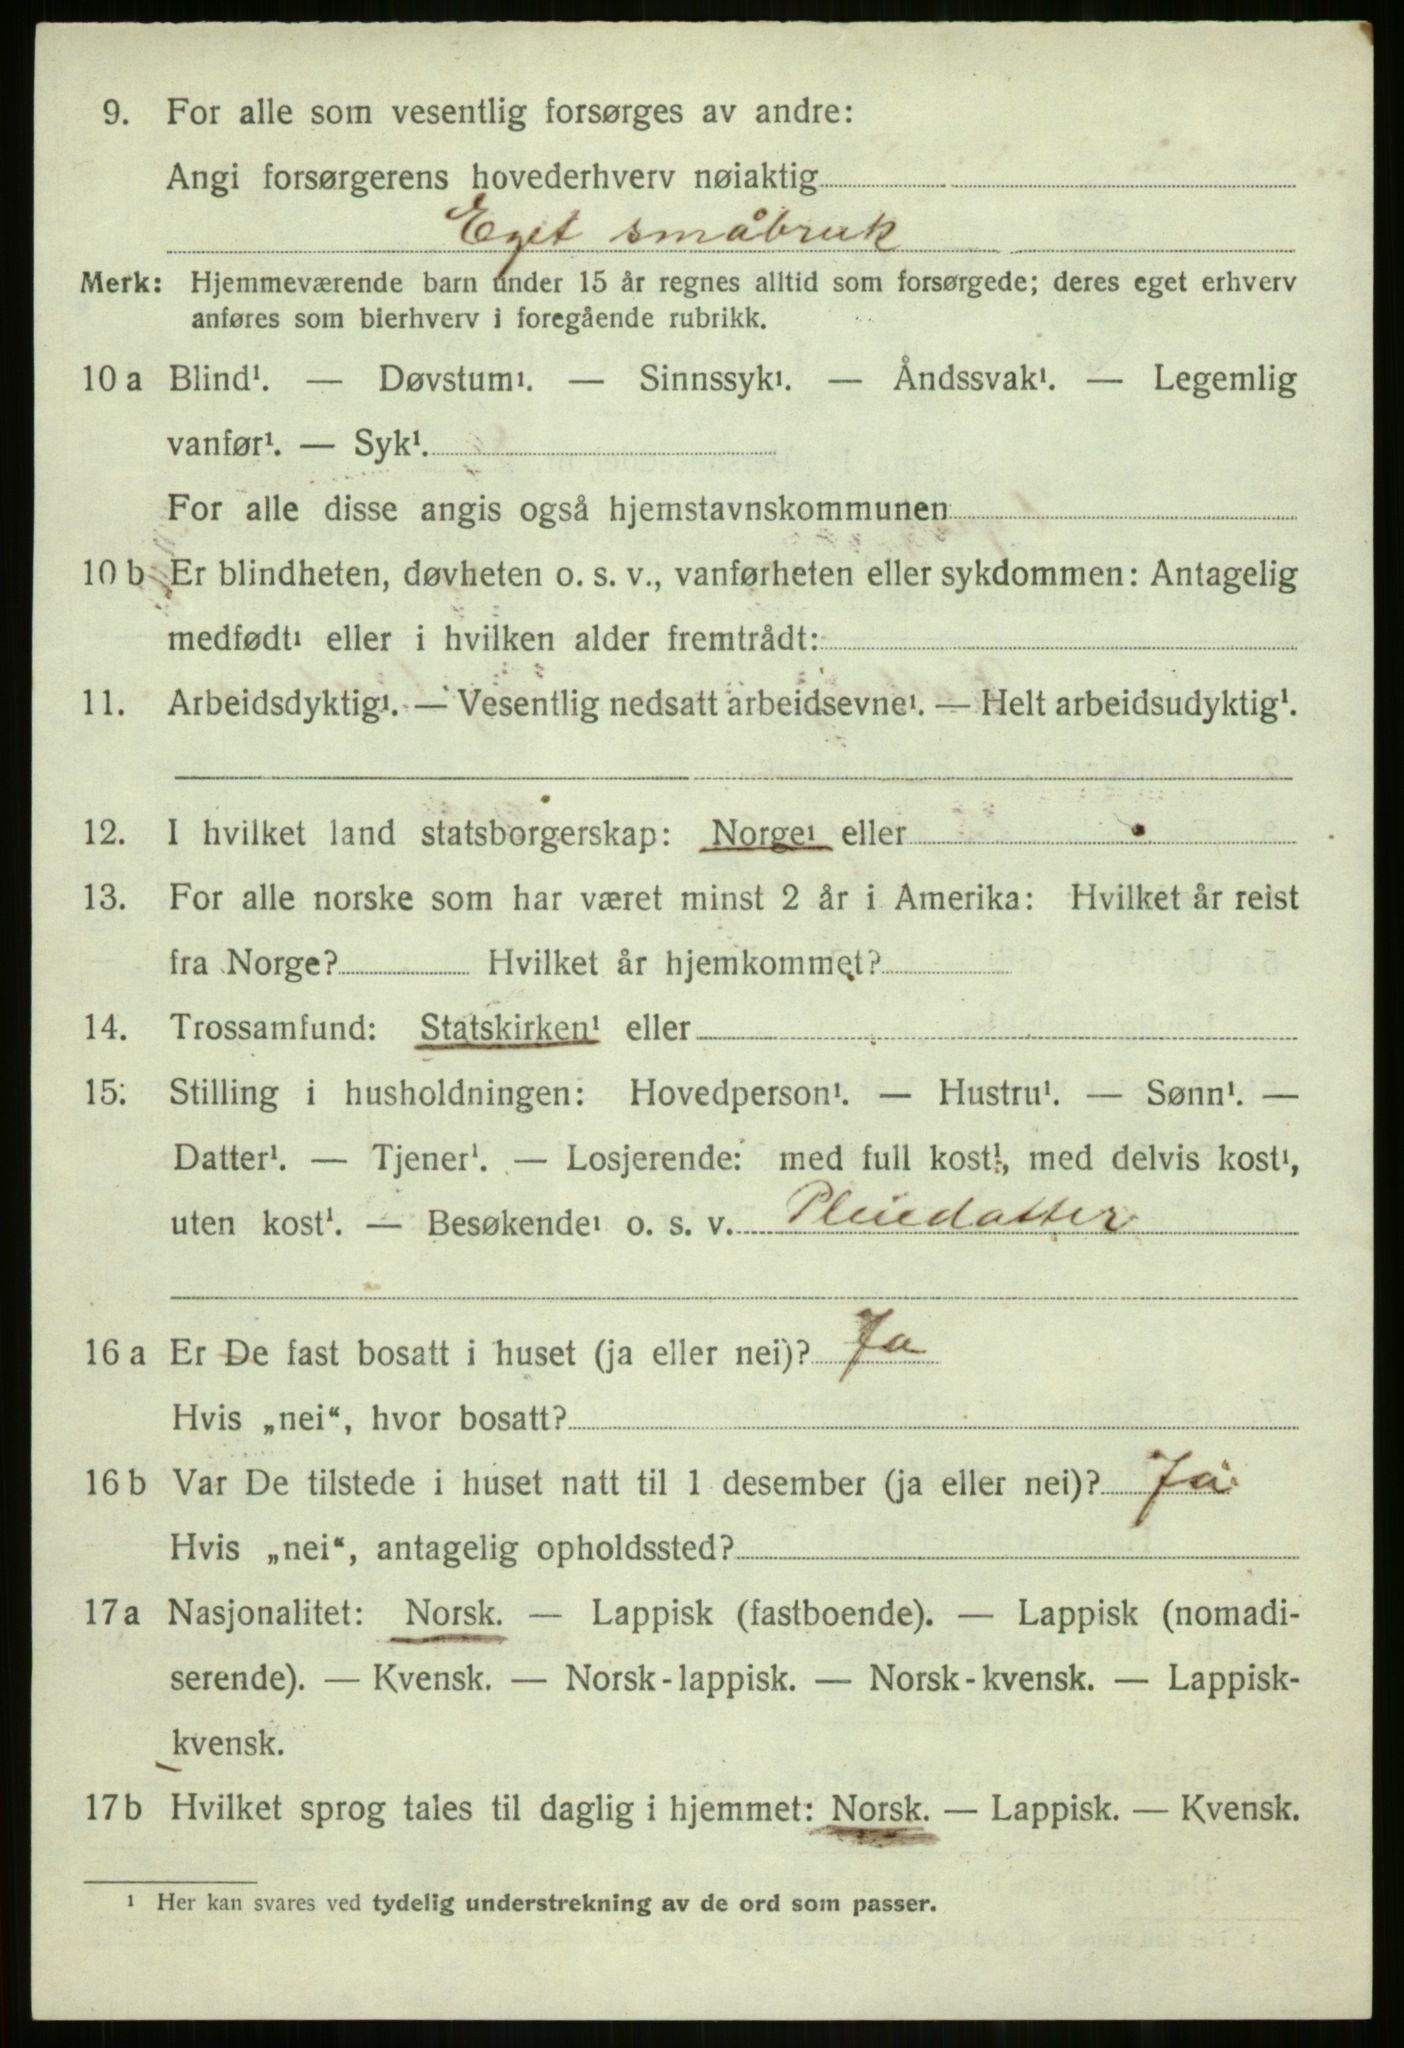 9. For alle som vesentlig forsørges av andre:
Angi forsørgerens hovederhverv nøiaktig
Eget småbruk
Merk: Hjemmeværende barn under 15 år regnes alltid som forsørgede; deres eget erhverv
anføres som bierhverv i foregående rubrikk.
10 a Blind¹. — Døvstum¹. — Sinnssyk¹. — Åndssvak¹. — Legemlig
vanfør¹. — Syk¹.
For alle disse angis også hjemstavnskommunen
10 b Er blindheten, døvheten o. s. v., vanførheten eller sykdommen: Antagelig
medfødt¹ eller i hvilken alder fremtrådt:
11. Arbeidsdyktig¹. — Vesentlig nedsatt arbeidsevne¹. — Helt arbeidsudyktig¹.
12. I hvilket land statsborgerskap: Norge¹ eller
13. For alle norske som har været minst 2 år i Amerika: Hvilket år reist
fra Norge? Hvilket år hjemkommet?
14. Trossamfund: Statskirken¹ eller
15. Stilling i husholdningen: Hovedperson¹. — Hustru¹. — Sønn¹. —
Datter¹. — Tjener¹. — Losjerende: med full kost¹, med delvis kost¹,
uten kost¹. — Besøkende¹ o. s. v. Pleiedatter
16 a Er De fast bosatt i huset (ja eller nei)? Ja
Hvis „nei“, hvor bosatt?
16 b Var De tilstede i huset natt til 1 desember (ja eller nei)? Ja
Hvis „nei“, antagelig opholdssted?
17 a Nasjonalitet: Norsk. — Lappisk (fastboende). — Lappisk (nomadi-
serende). — Kvensk. — Norsk-lappisk. — Norsk-kvensk. — Lappisk-
kvensk.
17 b Hvilket sprog tales til daglig i hjemmet: Norsk. — Lappisk. — Kvensk.
¹ Her kan svares ved tydelig understrekning av de ord som passer.